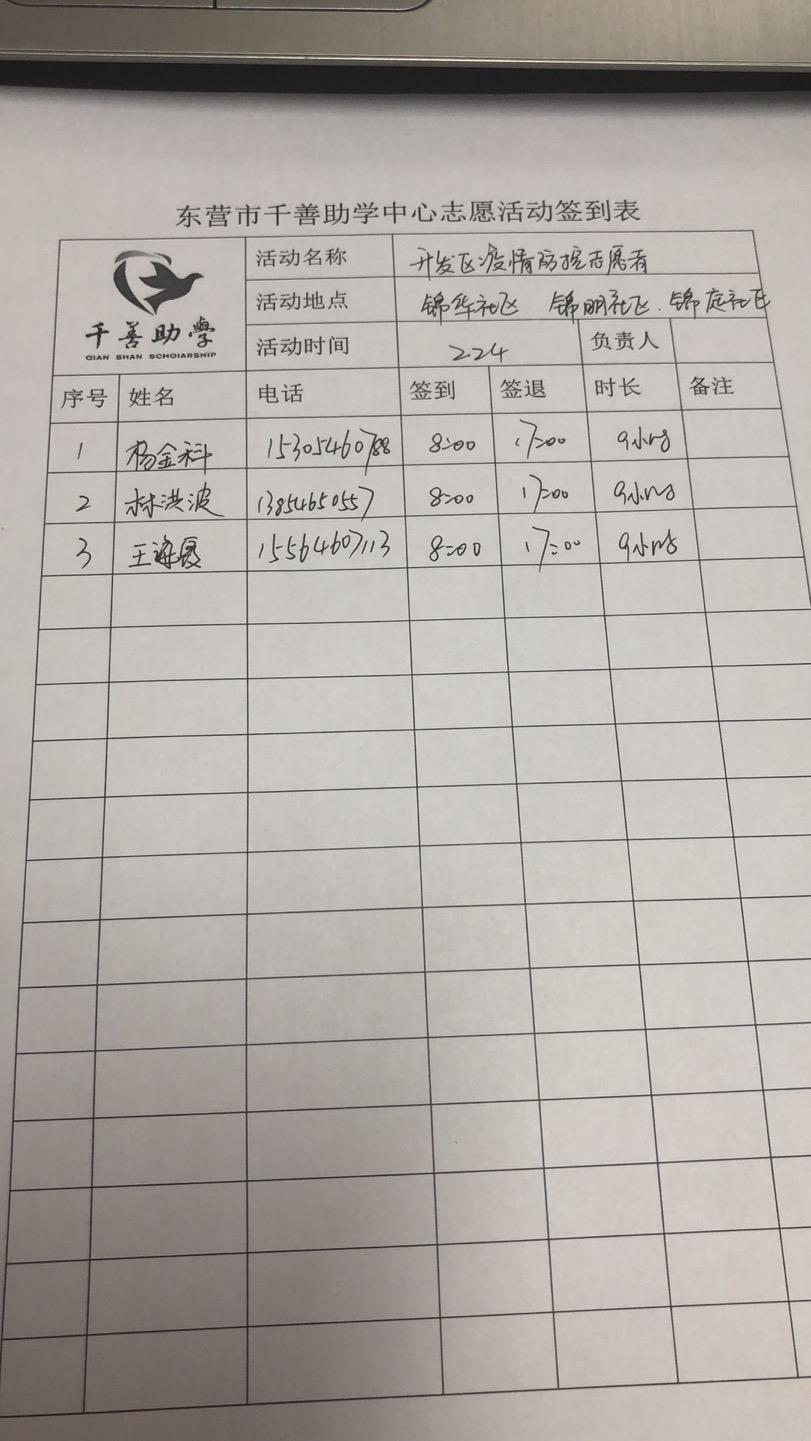 东营市千善助学中心志愿活动签到表
千善助學
QIAN SHAN SCHOIARSHIP
活动名称 开发区疫情防控志愿者
活动地点 锦华社区 锦明社区.锦庭社区
活动时间 2.24 负责人
序号 姓名 电话 签到 签退 时长 备注
1 杨金科 15305460788 8:00 17:00 9小时
2 林洪波 13854650557 8:00 17:00 9小时
3 王海 15564607113 8:00 17:00 9小时